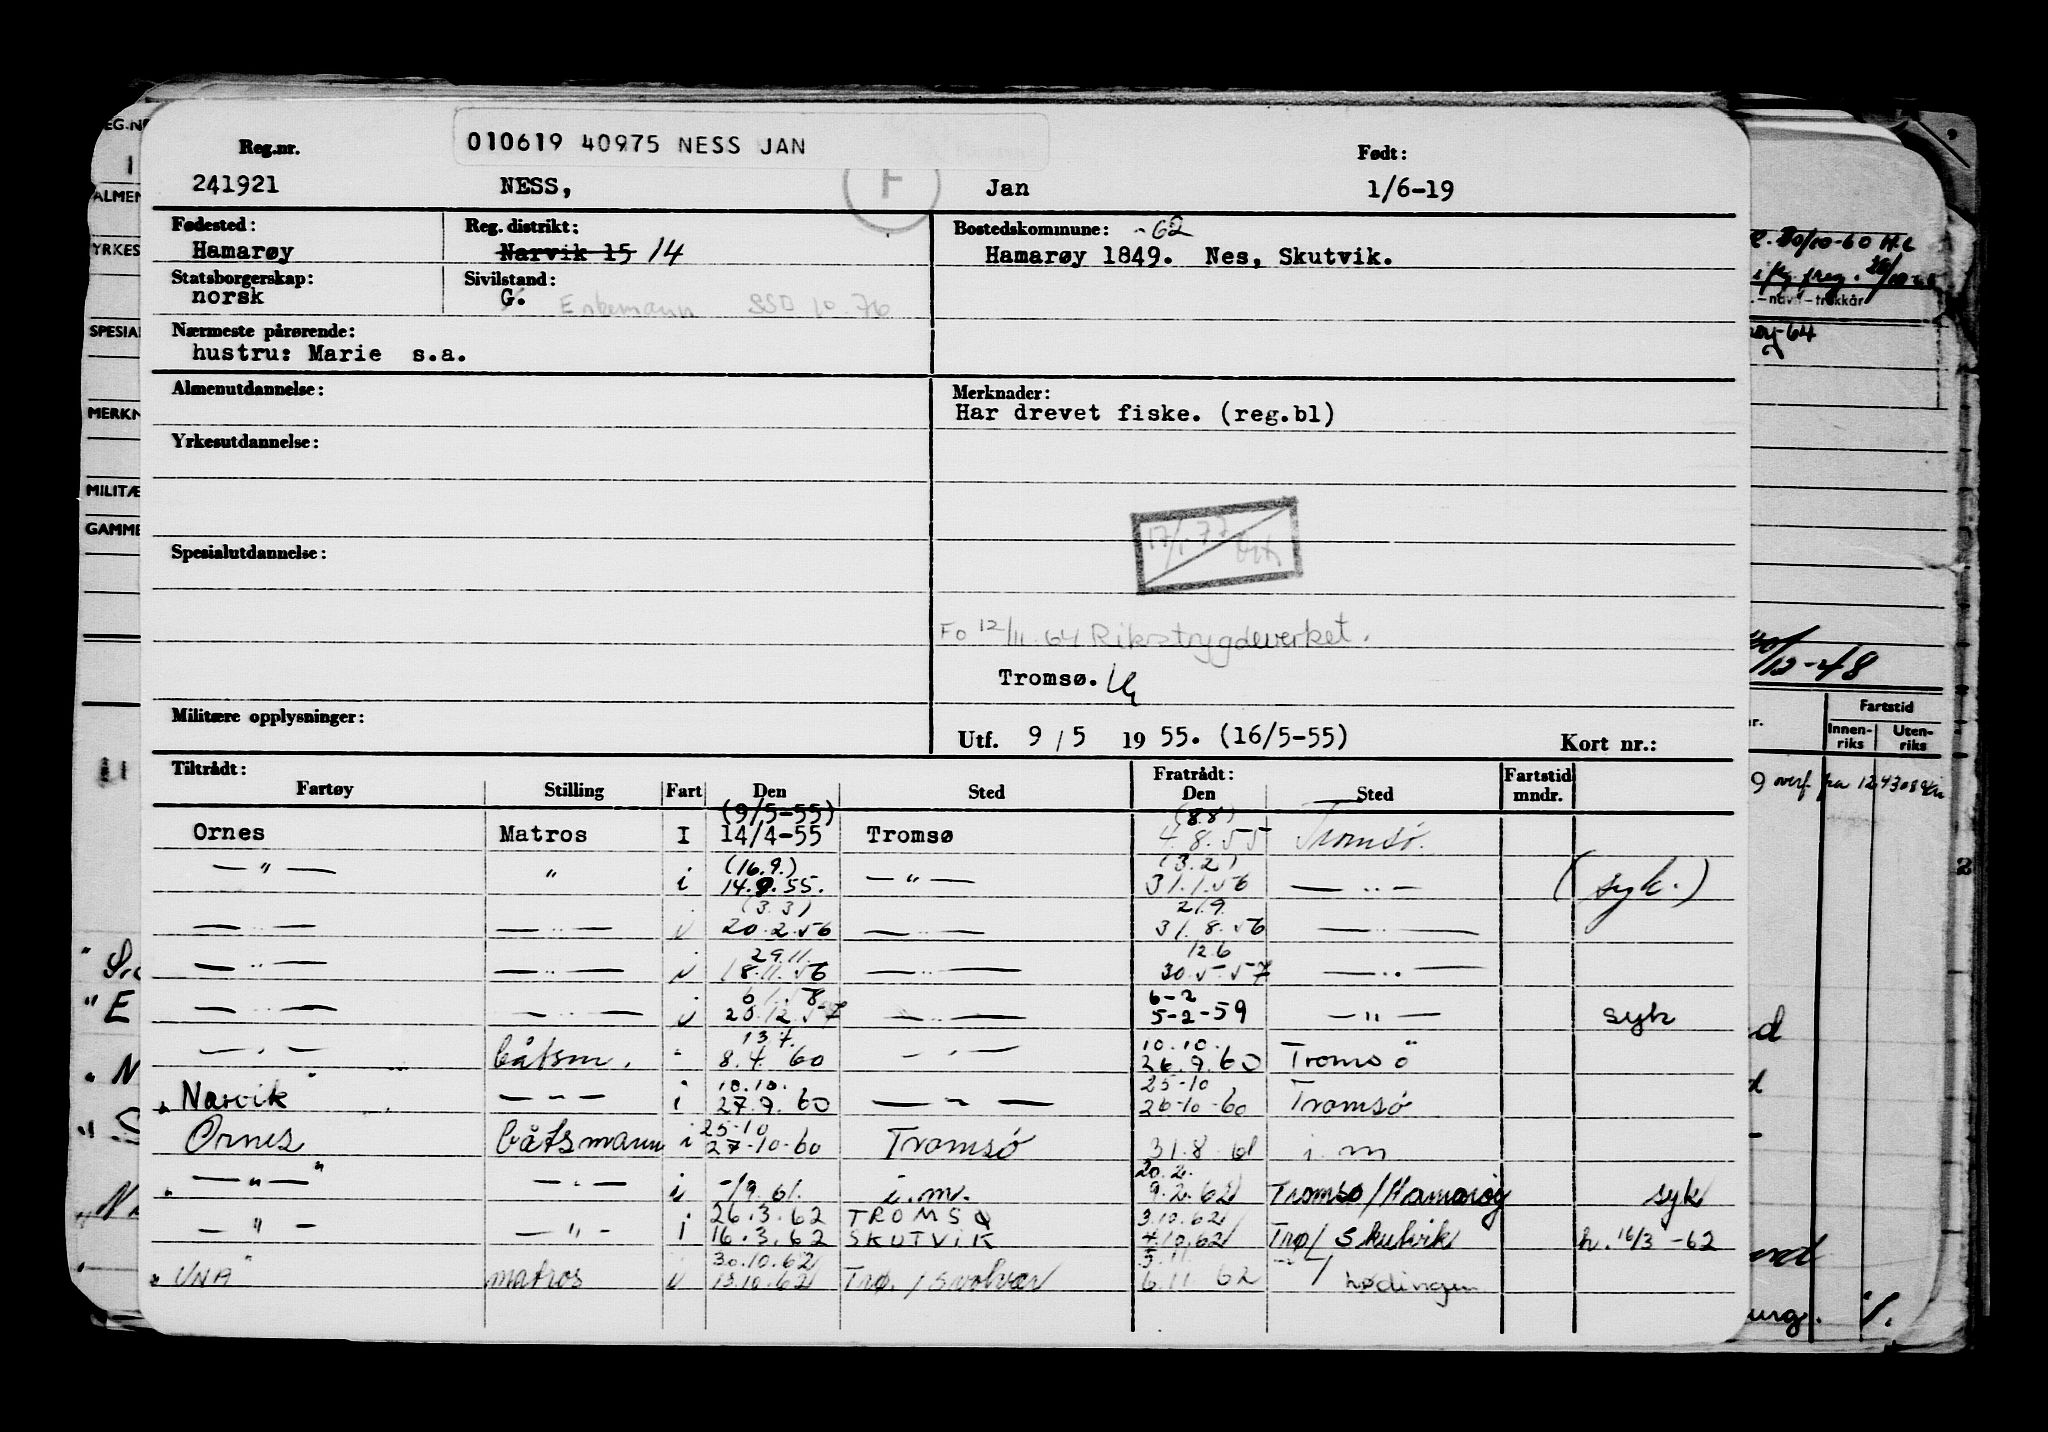 010619 40975 NESS JAN
Reg.nr. Født:
241921 NESS, F Jan 1/6-19
Fødested: Reg. distrikt: Bostedskommune: -62
Hamarøy Narvik 15 14 Hamarøy 1849. Nes, Skutvik.
Statsborgerskap: Sivilstand:
norsk G. Enkemann SSD 10.76
Nærmeste pårørende:
hustru: Marie s.a.
Almenutdannelse: Merknader:
Har drevet fiske. (reg.bl)
Yrkesutdannelse:
17/1 77
Spesialutdannelse:
Fo 12/11.64 Rikstrygdeverket.
Tromsø.
Militære opplysninger:
Utf. 9 / 5 19 55. (16/5-55) Kort nr.:
Tiltrådt: Fratrådt: Fartstid
Fartøy Stilling Fart Den Sted Den Sted mndr.
(9/5-55) (8.8)
Ornes Matros I 14/4-55 Tromsø 4.8.55 Tromsø.
(16.9.) (3.2)
— " — " i 14.9.55. — " — 31.1.56 — .. — (syk.)
(3.3) 21.9.
— .. — — .. — i 20.2.56 — .. — 31.8.56 — .. —
29.11. 12.6
— .. — — .. — i 18.11.56 — .. — 30.5.57 — .. —
6/1.58 6-2
— .. — — .. — i 20.12.57 — .. — 5-2-59 — " — syk
13.7. 10.10.
— . — båtsm. - 8.7.60 — . — 26.9.60 Tromsö
10.10. 25-10
" Narvik " — " — i 27.9.60 — " — 26-10-60 Tromsø
25-10
Ornes båtsmann i 27-10-60 Tromsø 31.8.61 i.m
20.2.
" — " — " — . — i -/9.61. i.m. 9.2.62 Tromsø/Hamarøy syk
26.3.62 TROMSØ 3.10.62
— " — — " — i 16.3.62 SKUTVIK 4.10.62 Trø/Skutvik h. 16/3-62
30.10.62 5.11.
" UNA " matros i 13.10.62 Trø./Svolvær 6.11.62 — " — / Lødingen
EG.NR
ALMEN
YRKES
SPESIAL
MERKN
MILITÆ
GAMME
" E
" N
-navn-trekkår
-64
/12-48
Fartstid
Innen-riks Uten-riks
9 overf fra